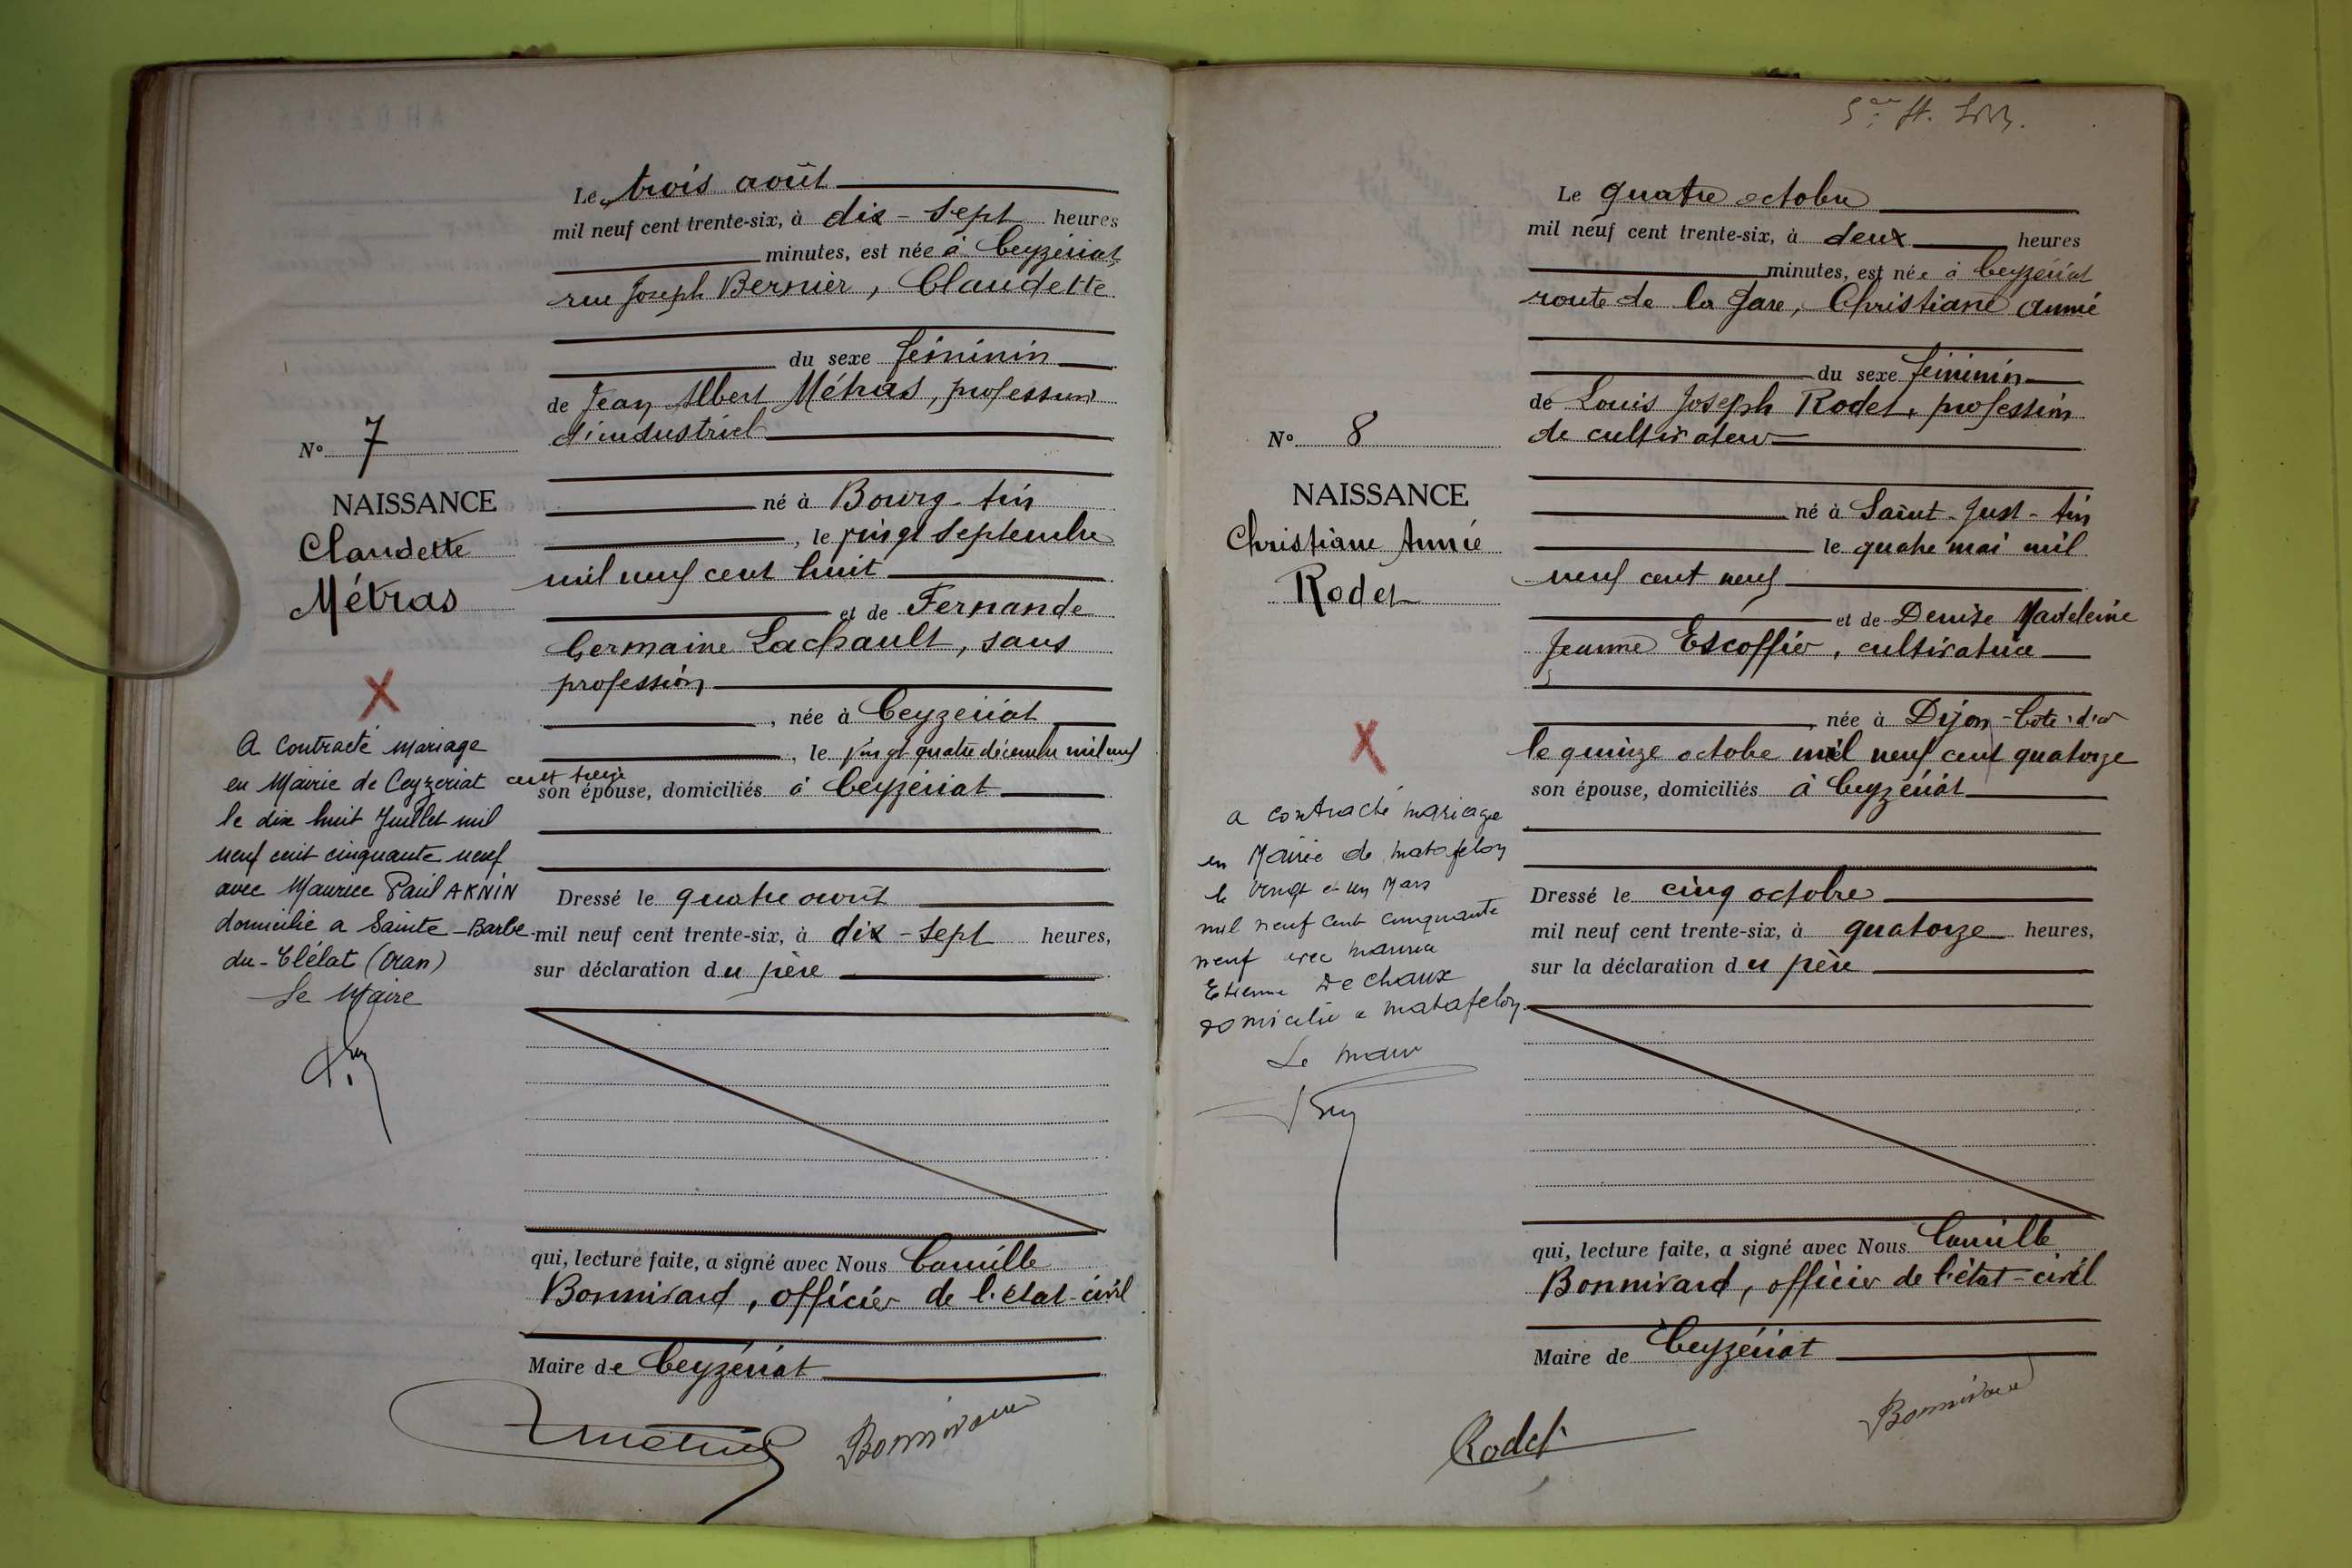 Le trois août
mil neuf cent trente-six, à dix-sept heures
minutes, est née à Ceyzériat
rue Joseph Bernier, Claudette
du sexe féminin
de Jean Albert Métras, profession
d'industriel
N° 7
NAISSANCE
Claudette
Métras
né à Bourg-Ain
, le vingt septembre
mil neuf cent huit
et de Fernande
Germaine Lachault, sans
profession
, née à Ceyzériat
, le vingt quatre décembre mil neuf
cent treize
son épouse, domiciliés à Ceyzériat
X
A contracté mariage
en Mairie de Ceyzeriat
le dix huit Juillet mil
neuf cent cinquante neuf
avec Maurice Paul AKNIN
domicilié a Sainte-Barbe-
du-Tlélat (Oran)
Le Maire
Dressé le quatre août
mil neuf cent trente-six, à dix-sept heures,
sur déclaration du père
qui, lecture faite, a signé avec Nous Camille
Bonnivard, officier de l'état-civil
Maire de Ceyzériat
Bonnivard
Le quatre octobre
mil neuf cent trente-six, à deux heures
minutes, est née à Ceyzériat
route de la Gare, Christiane Annie
du sexe féminin
de Louis Joseph Rodet, profession
de cultivateur
N° 8
NAISSANCE
Christiane Annie
Rodet
né à Saint-Just-Ain
le quatre mai mil
neuf cent neuf
et de Denise Madeleine
Jeanne Escoffier, cultivatrice
née à Dijon-Côte d'or
le quinze octobre mil neuf cent quatorze
son épouse, domiciliés à Ceyzériat
X
a contracté mariage
en Mairie de Matafelon
le vingt et un Mars
mil neuf cent cinquante
neuf avec Maurice
Etienne Dechaux
domicilié a Matafelon
Le maire
Dressé le cinq octobre
mil neuf cent trente-six, à quatorze heures,
sur la déclaration du père
qui, lecture faite, a signé avec Nous Camille
Bonnivard, officier de l'état-civil
Maire de Ceyzériat
Rodet
Bonnivard